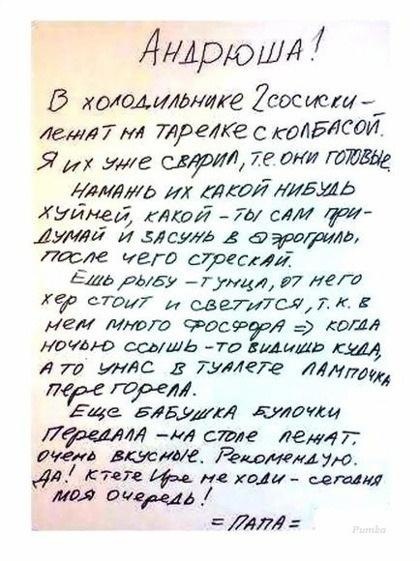 АНДРЮША!
В ХОЛОДИЛЬНИКЕ 2 СОСИСКИ –
ЛЕЖАТ НА ТАРЕЛКЕ С КОЛБАСОЙ.
Я ИХ УЖЕ СВАРИЛ, Т.Е. ОНИ ГОТОВЫЕ.
НАМАЖЬ ИХ КАКОЙ НИБУДЬ
ХУЙНЕЙ, КАКОЙ – ТЫ САМ ПРИ-
ДУМАЙ И ЗАСУНЬ В АЭРОГРИЛЬ,
ПОСЛЕ ЧЕГО СТРЕСКАЙ.
ЕШЬ РЫБУ – ТУНЦА, ОТ НЕГО
ХЕР СТОИТ И СВЕТИТСЯ, Т.К. В
НЕМ МНОГО ФОСФОРА => КОГДА
НОЧЬЮ ССЫШЬ – ТО ВИДИШЬ КУДА,
А ТО У НАС В ТУАЛЕТЕ ЛАМПОЧКА
ПЕРЕГОРЕЛА.
ЕЩЕ БАБУШКА БУЛОЧКИ
ПЕРЕДАЛА – НА СТОЛЕ ЛЕЖАТ.
ОЧЕНЬ ВКУСНЫЕ. РЕКОМЕНДУЮ.
ДА! К ТЕТЕ ИРЕ НЕ ХОДИ – СЕГОДНЯ
МОЯ ОЧЕРЕДЬ!
= ПАПА =
Pumba